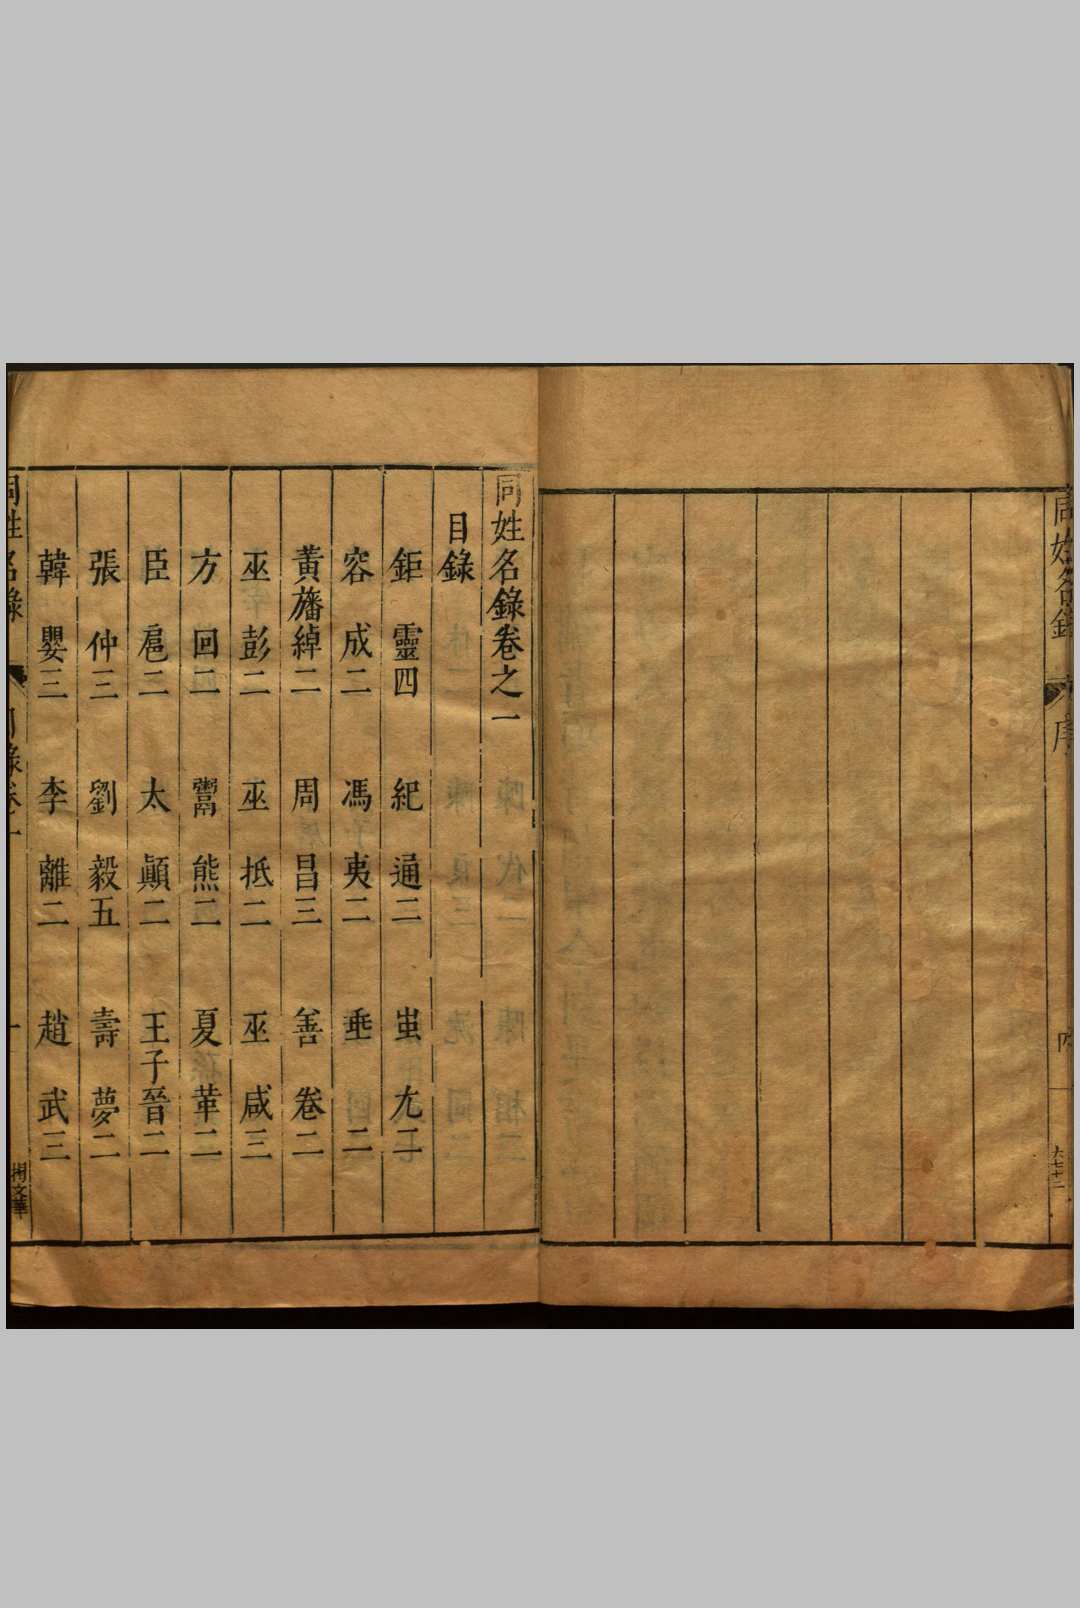 同姓名錄
序
六七十二
同姓名錄卷之一
目錄
鉅靈四 紀通二 蚩尤二
容成二 馮夷二 垂二
黃旛綽二 周昌三 善卷二
巫彭二 巫抵二 巫咸三
方回二 鬻熊二 夏革二
臣扈二 太顛二 王子晉二
張仲三 劉毅五 壽夢二
韓嬰三 李離二 趙武三
同姓名錄 目錄卷一 一